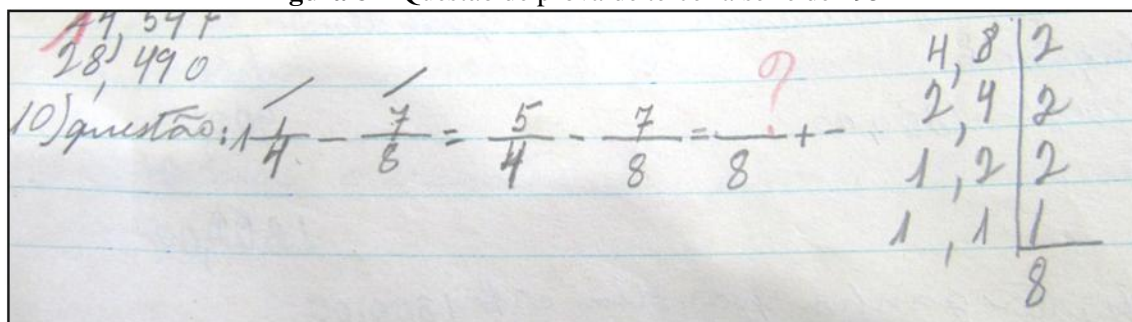 28,490
10) questão: 1 1/4 - 7/8 = 5/4 - 7/8 = /8 + -
?
4, 8 | 2
2, 4 | 2
1, 2 | 2
1, 1 | 1
8